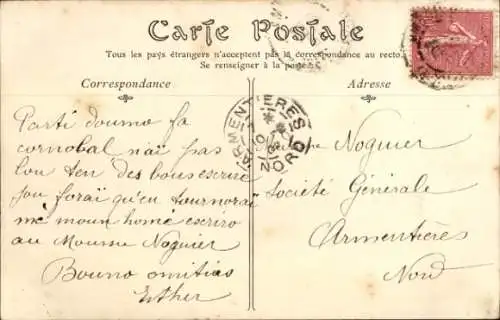 Carte Postale
Tous les pays étrangers n'acceptent pas la correspondance au recto.
Se renseigner à la poste.
Correspondance
Adresse
ARMENTIÈRES
NORD
Parti doumo
cornobal n'aï pas
lou ten des bous escrire
foraï qu'en tournoraï
me moun homé escriro
au Mousse Noguier
Bouno omitias
Esther
Noguier
Société Générale
Armentières
Nord